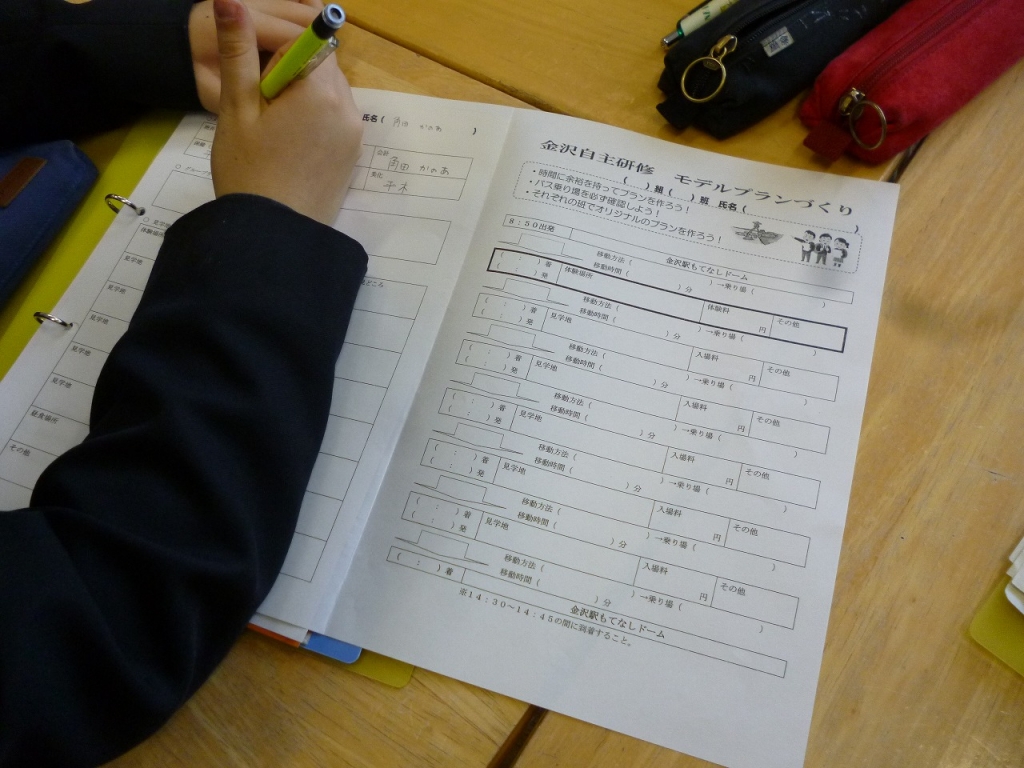 氏名( 角田 かのあ )
会計
角田 かのあ
美化
平木
体験場所
見学地
見学地
見学地
見学地
見学地
昼食場所
その他
金沢自主研修 モデルプランづくり
( )組( )班 氏名( )
・時間に余裕を持ってプランを作ろう!
・バス乗り場を必ず確認しよう!
・それぞれの班でオリジナルのプランを作ろう!
8:50出発 金沢駅もてなしドーム
移動方法( )→乗り場( )
移動時間( )分
( : )着 体験場所 体験料 その他
( : )発 円
移動方法( )→乗り場( )
移動時間( )分
( : )着 見学地 入場料 その他
( : )発 円
移動方法( )→乗り場( )
移動時間( )分
( : )着 見学地 入場料 その他
( : )発 円
移動方法( )→乗り場( )
移動時間( )分
( : )着 見学地 入場料 その他
( : )発 円
移動方法( )→乗り場( )
移動時間( )分
( : )着 見学地 入場料 その他
( : )発 円
移動方法( )→乗り場( )
移動時間( )分
( : )着 見学地 入場料 その他
( : )発 円
移動方法( )→乗り場( )
移動時間( )分
( : )着 金沢駅もてなしドーム
※14:30~14:45の間に到着すること。